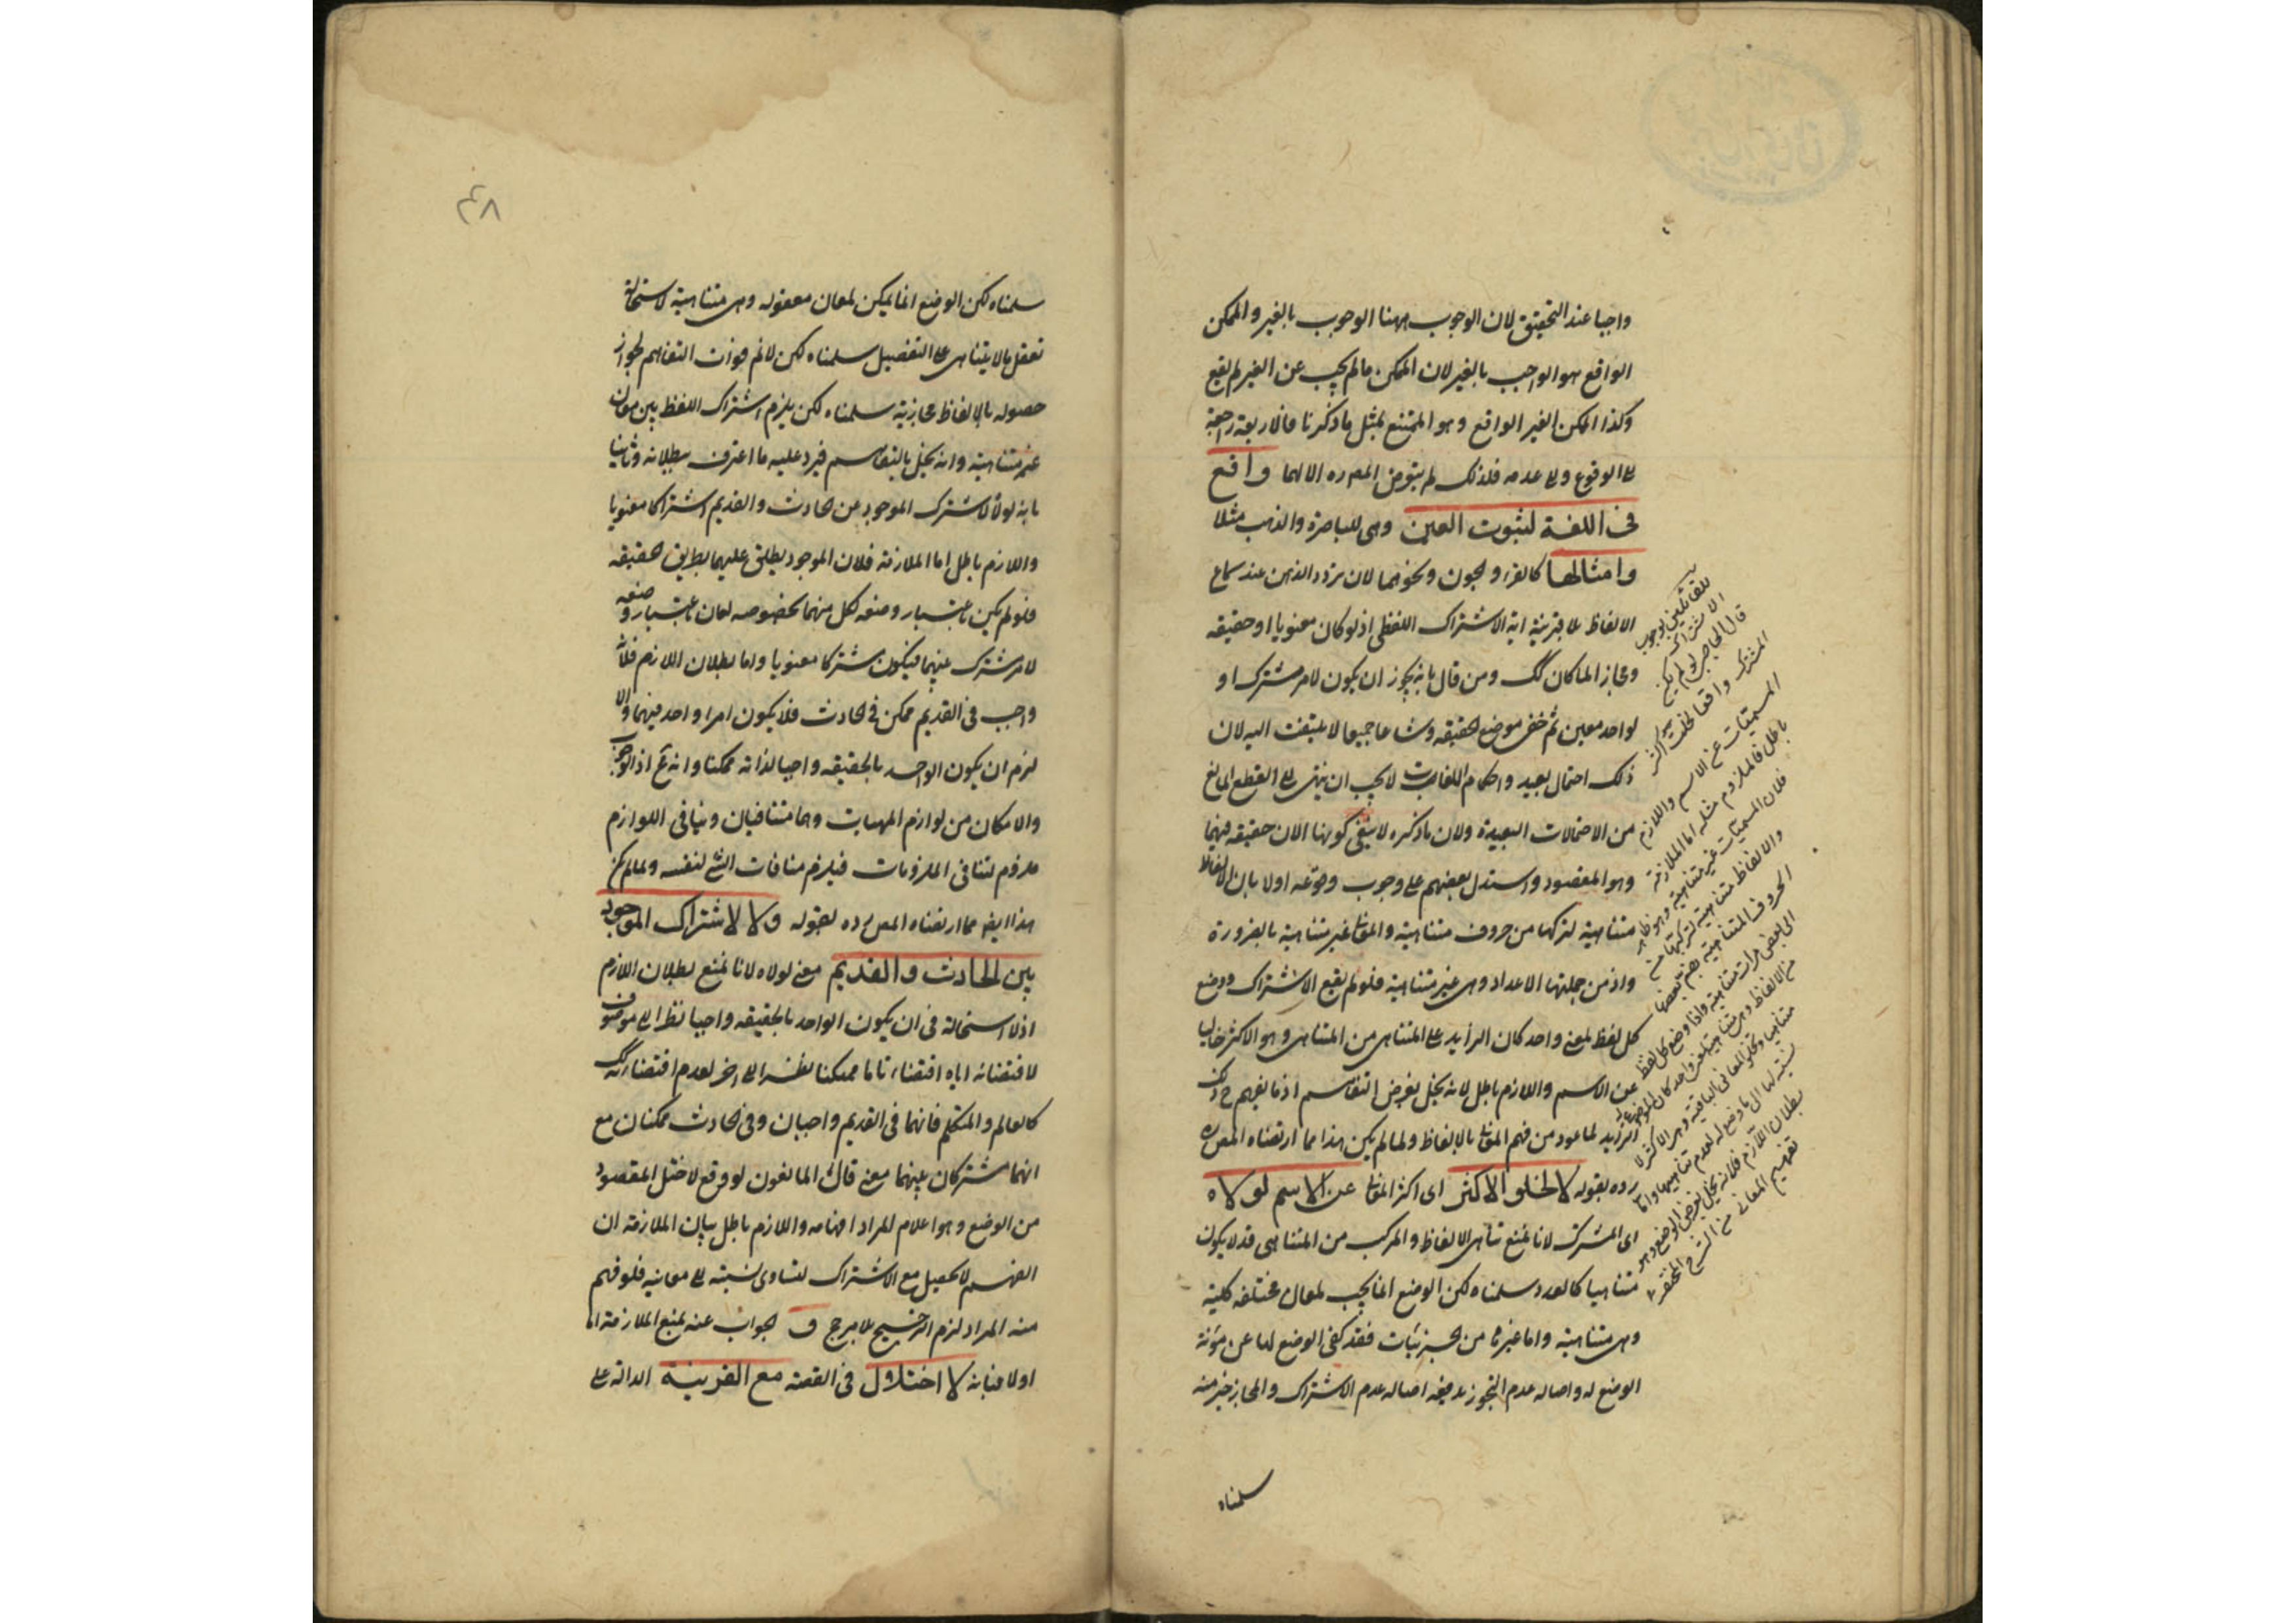 واجبا عند التحقيق لان الوجوب ههنا الوجوب بالغير والممكن
الواقع هو الواجب بالغير لان الممكن ما لم يجب عن الغير لم يقع
وكذا الممكن الغير الواقع وهو الممتنع بمثل ما ذكرنا فالاربعة راجعة
الى الوقوع والى عدمه فلذلك لم يتعرض المص ره الا لهما واقع
فى اللغة لثبوت العين وهى للباصرة والذهب مثلا
وامثالها كالقرء والجون ونحوهما لان تردد الذهن عند سماع
الالفاظ بلا قرينة اية الاشتراك اللفظى اذ لو كان معنويا او حقيقه
ومجازا لما كان كك ومن قال بانه يجوز ان يكون لامر مشترك او
لواحد معين ثم خفى موضع الحقيقه وشاعا جميعا لا يلتفت اليه لان
ذلك احتمال بعيد واحكام اللغات لا يجب ان ينتهى الى القطع المانع
من الاحتمالات البعيدة ولان ما ذكره لا ينفى كونها الان حقيقه فيهما
وهو المقصود واستدل بعضهم على وجوب وقوعه اولا بان الالفاظ
متناهية لتركبها من حروف متناهية والمعانى غير متناهية بالضرورة
واذ من جملتها الاعداد وهى غير متناهية فلو لم يقع الاشتراك ووضع
كل لفظ لمعنى واحد كان الزايد على المتناهى من المتناهى وهو الاكثر خاليا
عن الاسم واللازم باطل لانه يخل بغرض التفاهم اذ ما يفهم ح
لما عهد من فهم المعانى بالالفاظ ولما لم يكن هذا مما ارتضاه المص ره
رده بقوله لا لخلو الاكثر اى اكثر المعانى عن الاسم لولاه
اى المشترك لانا نمنع تناهى الالفاظ والمركب من المتناهى قد لا يكون
متناهيا كالعدد سلمناه لكن الوضع انما يجب لمعان مختلفه كلية
وهى متناهية واما غيرها من الجزئيات فقد كفى الوضع لها عن مؤنة
الوضع له واصاله عدم التجوز يدفعه اصاله عدم الاشتراك والمجاز خير منه
سلمناه
للقائلين بوجوب
الاشتراك
قال الحاجبى لو لم يكن
المشترك واقعا لخلت اكثر
المسميات عن الاسم واللازم
باطل فالملزوم مثله اما الملازمة
فلان المسميات غير متناهية وهو ظاهر
والالفاظ متناهية لتركبها من
الحروف المتناهية بضم بعضها
الى بعض مرات متناهية واذا وضع كل لفظ
من الالفاظ وهى متناهية لمعنى واحد كان الموضوع له
متناهيا وتخلو المعانى الباقية وهى الاكثر لا
نسبة لها الى ما وضع له لعدم تناهيها واما
بطلان اللازم فلانه يخل بغرض الوضع وهو
تفهيم المعانى من الشرح المختصر
٤٨
سلمناه لكن الوضع انما يمكن لمعان معقوله وهى متناهية لاستحالة
تعقل ما لا يتناهى على التفصيل سلمناه لكن لا نم فوات التفاهم لجواز
حصوله بالالفاظ مجازية سلمناه لكن يلزم اشتراك اللفظ بين معان
غير متناهية وانه يخل بالتفاهم فيرد عليه ما اعترف ببطلانه وثانيا
بانه لولا لاشترك الموجود بين الحادث والقديم اشتراكا معنويا
واللازم باطل اما الملازمة فلان الموجود يطلق عليهما بطريق الحقيقه
فلو لم يكن باعتبار وضعه لكل منهما بخصوصه لكان باعتبار وضعه
لامر مشترك بينهما فيكون مشتركا معنويا واما بطلان اللازم فلانه
واجب فى القديم ممكن فى الحادث فلا يكون امرا واحدا فيهما والا
لزم ان يكون الواحد بالحقيقه واجبا لذاته ممكنا وانه مح اذ الوجوب
والامكان من لوازم المهيات وهما متنافيان وتنافى اللوازم
ملزوم لتنافى الملزومات فيلزم منافات الشئ لنفسه ولما لم يكن
هذا ايضا مما ارتضاه المص رده بقوله ولا لاشتراك الموجود
بين الحادث والقديم معنى لولاه لانا نمنع بطلان اللازم
اذ لا استحالة فى ان يكون الواحد بالحقيقه واجبا نظرا الى موصوف
لاقتضائه اياه اقتضاء تاما ممكنا نظرا الى اخر لعدم اقتضائه كك
كالعالم والمتكلم فانهما فى القديم واجبان وفى الحادث ممكنان مع
انهما مشتركان بينهما معنى قال المانعون لو وقع لاختل المقصود
من الوضع وهو اعلام المراد افهامه واللازم باطل بيان الملازمة ان
الفهم لا يحصل مع الاشتراك لتساوى نسبته الى معانيه فلو فهم
منه المراد لزم الترجيح بلا مرجح و الجواب عنه بمنع الملازمة اما
اولا فبانه لا اختلال فى القصد مع القرينة الدالة على